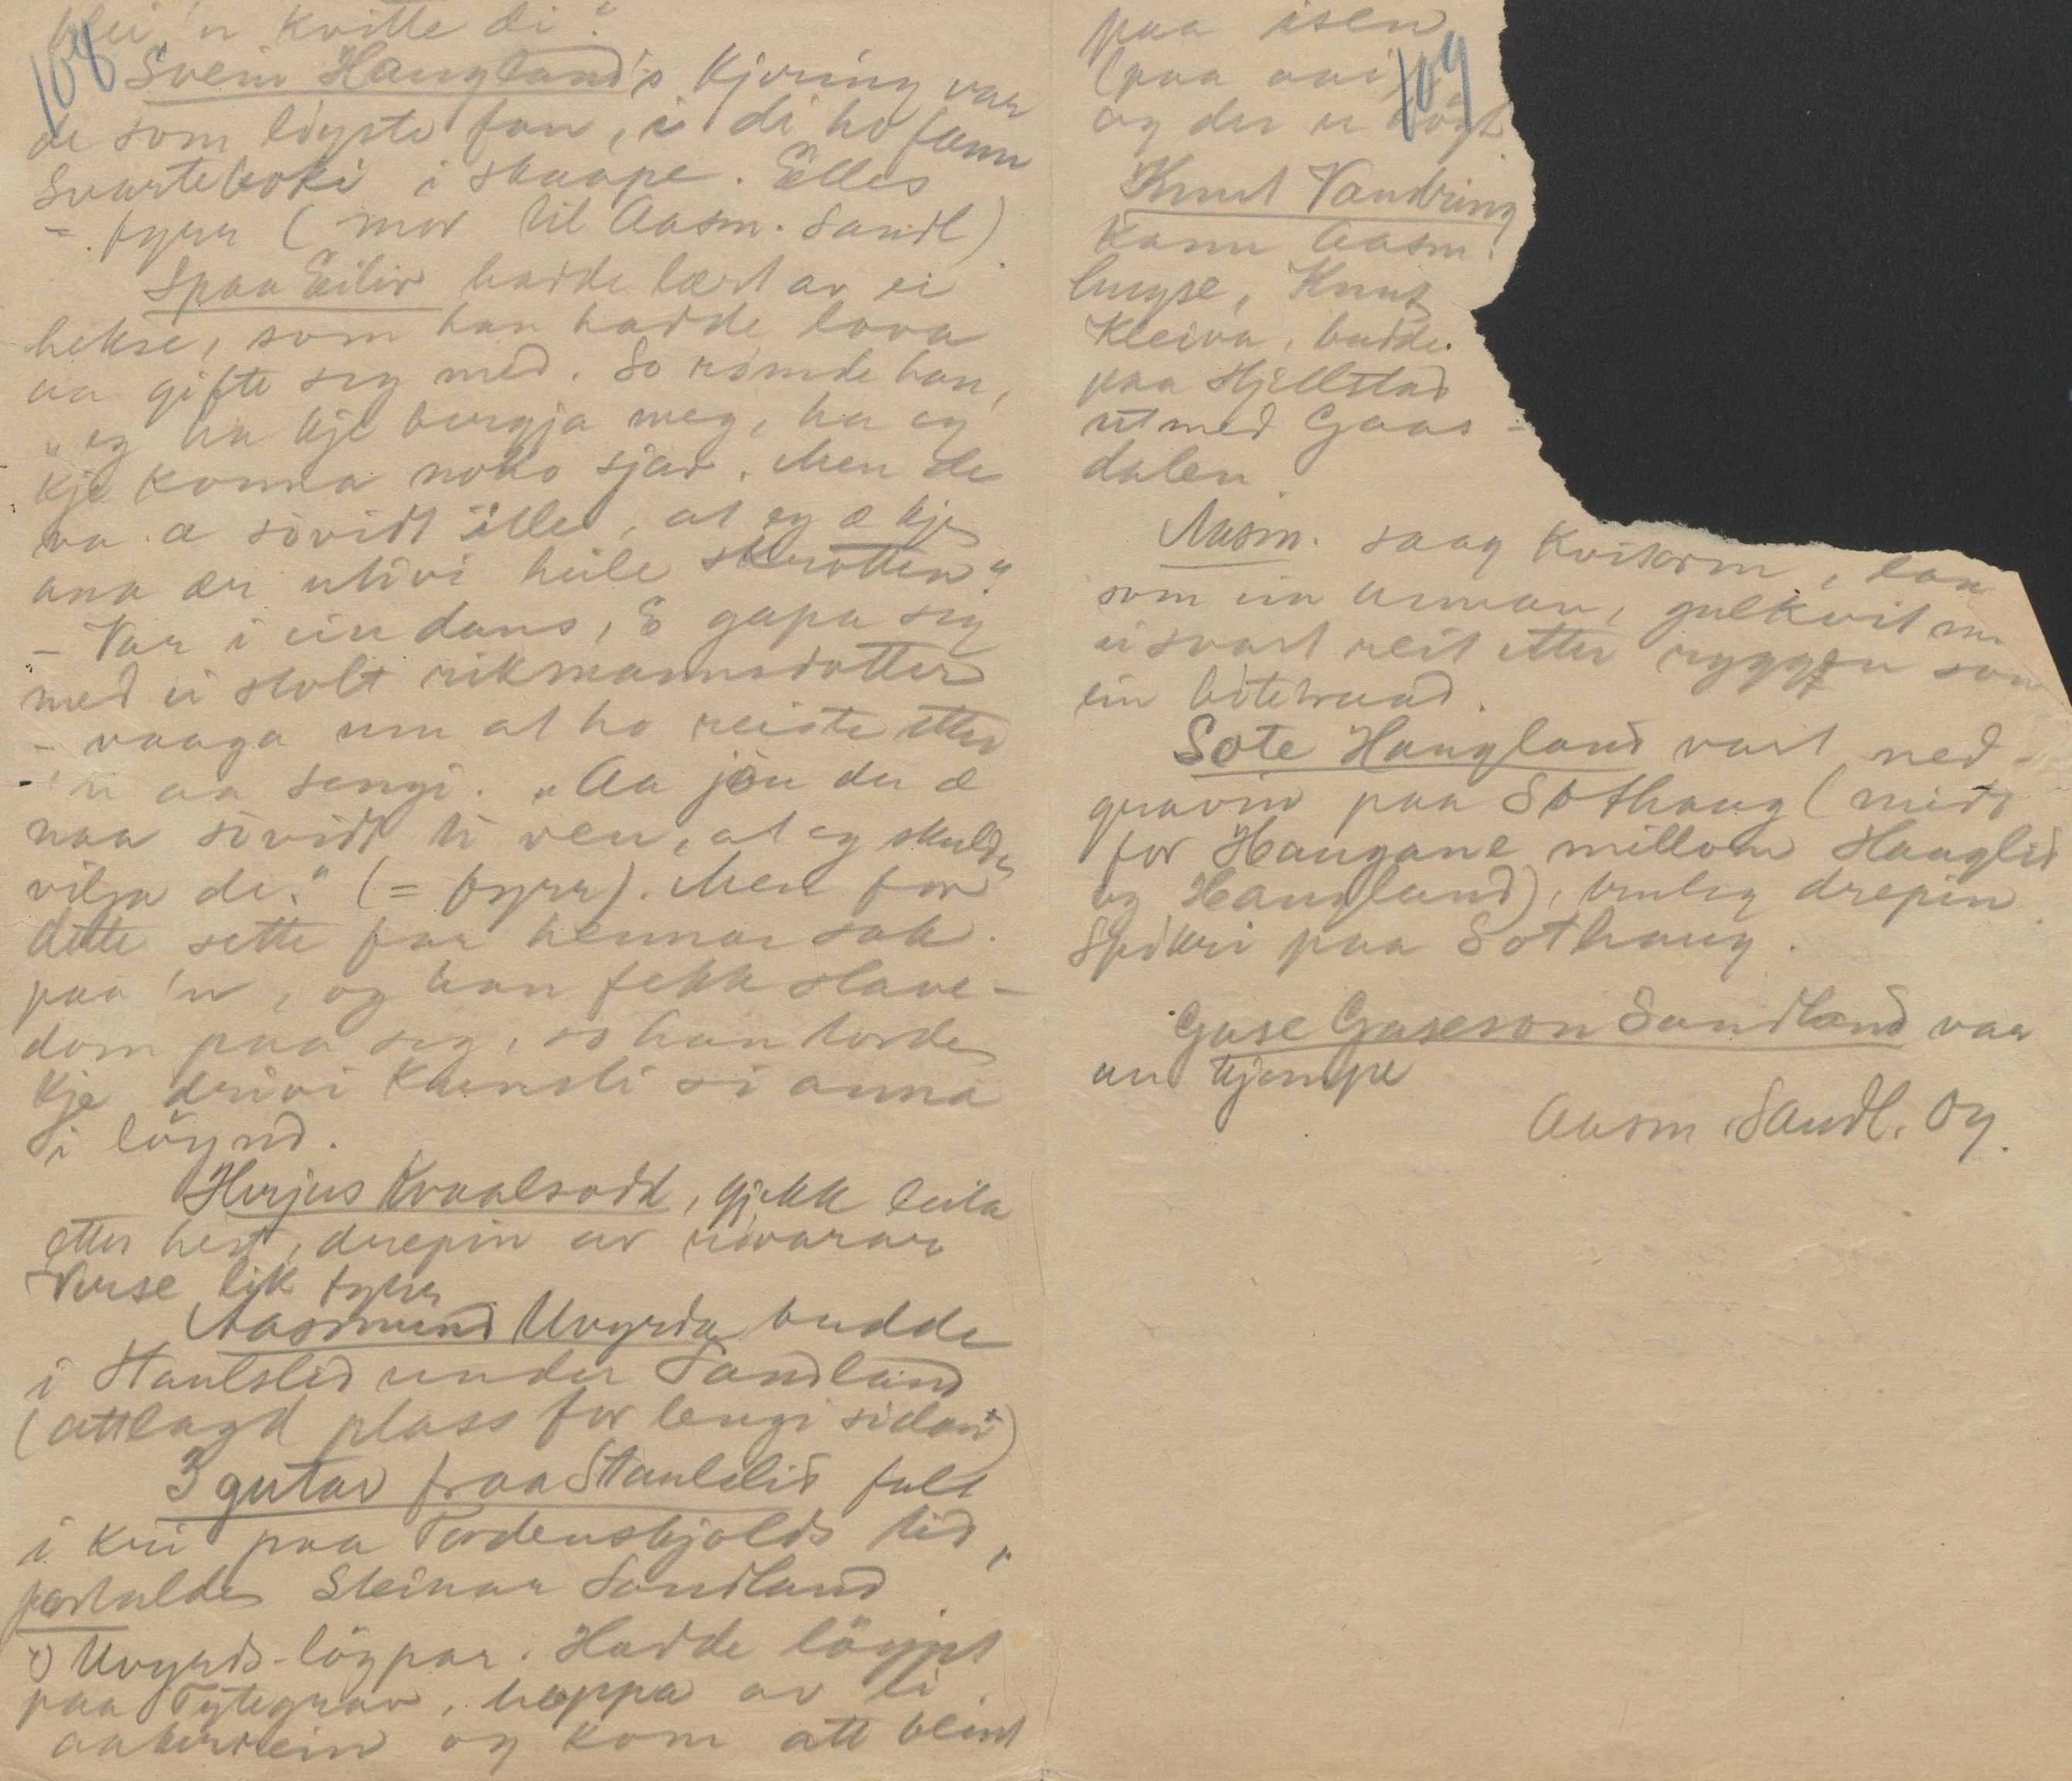 blei 'n kvitte di"
108
Svein Haugland's kjering var
de som löyste fan, i di ho fann
Svarteboki i skaape. Elles
= fyrr (mor til Aasm. Sandl)
Spaa Eiliv hadde lært av ei
hekse, som han hadde lova
aa gifte seg med. So römde han,
"eg ha kje bergja meg, ha eg
kje konna noko sjav. Men de
va a sövidt ille, at eg æ kje
ana er utivi heile skrotten"
- Var i ein dans, & gapa seg
med ei stolt rikmannsdotter
- vaaga um at ho reiste etter
'n aa sengi. "Aa jöu du æ
naa sövidt ti ven, at eg skulde
vilja de." (= fyrr). Men for
dette sette far hennar sak
paa 'n, og han fekk slave-
dom paa seg, so han torde
kje drivi kunsti si anna
i löynd.
Herjus Kvaalsodd, gjekk leita
etter hest, drepin av rövarar
Verse lik fyrr
Aasmund Uvyrda budde
i Staulslid under Sandland
(attlagd plass for lengi sidan)
3 gutar fraa Staulslid fall
i kri paa Tordenskjolds tid,
fortalde Steinar Sandland
Uvyrds-löypar. Hadde löypt
paa Tytegrav, hoppa av ei
aakerrein og kom att beint
paa isen
(paa aai)
109
og der er högt
Knut Vandring
Kann Aasm.
hugse, Knut
Kleiva, budde
paa Hjellstad
ut med Gaas-
dalen.
Aasm. saag Kvitorm, lang
som ein armar, gulkvit m
ei svart reit etter ryggen som
ein beitetraad.
Sote Haugland vart ned-
gravin paa Sothaug (midt
for Haugane millom Hauglid
og Haugland), truleg drepin
Spikri paa Sothaug.
Guse Guseson Sandland var
en kjempe
Aasm Sandl. Oy.